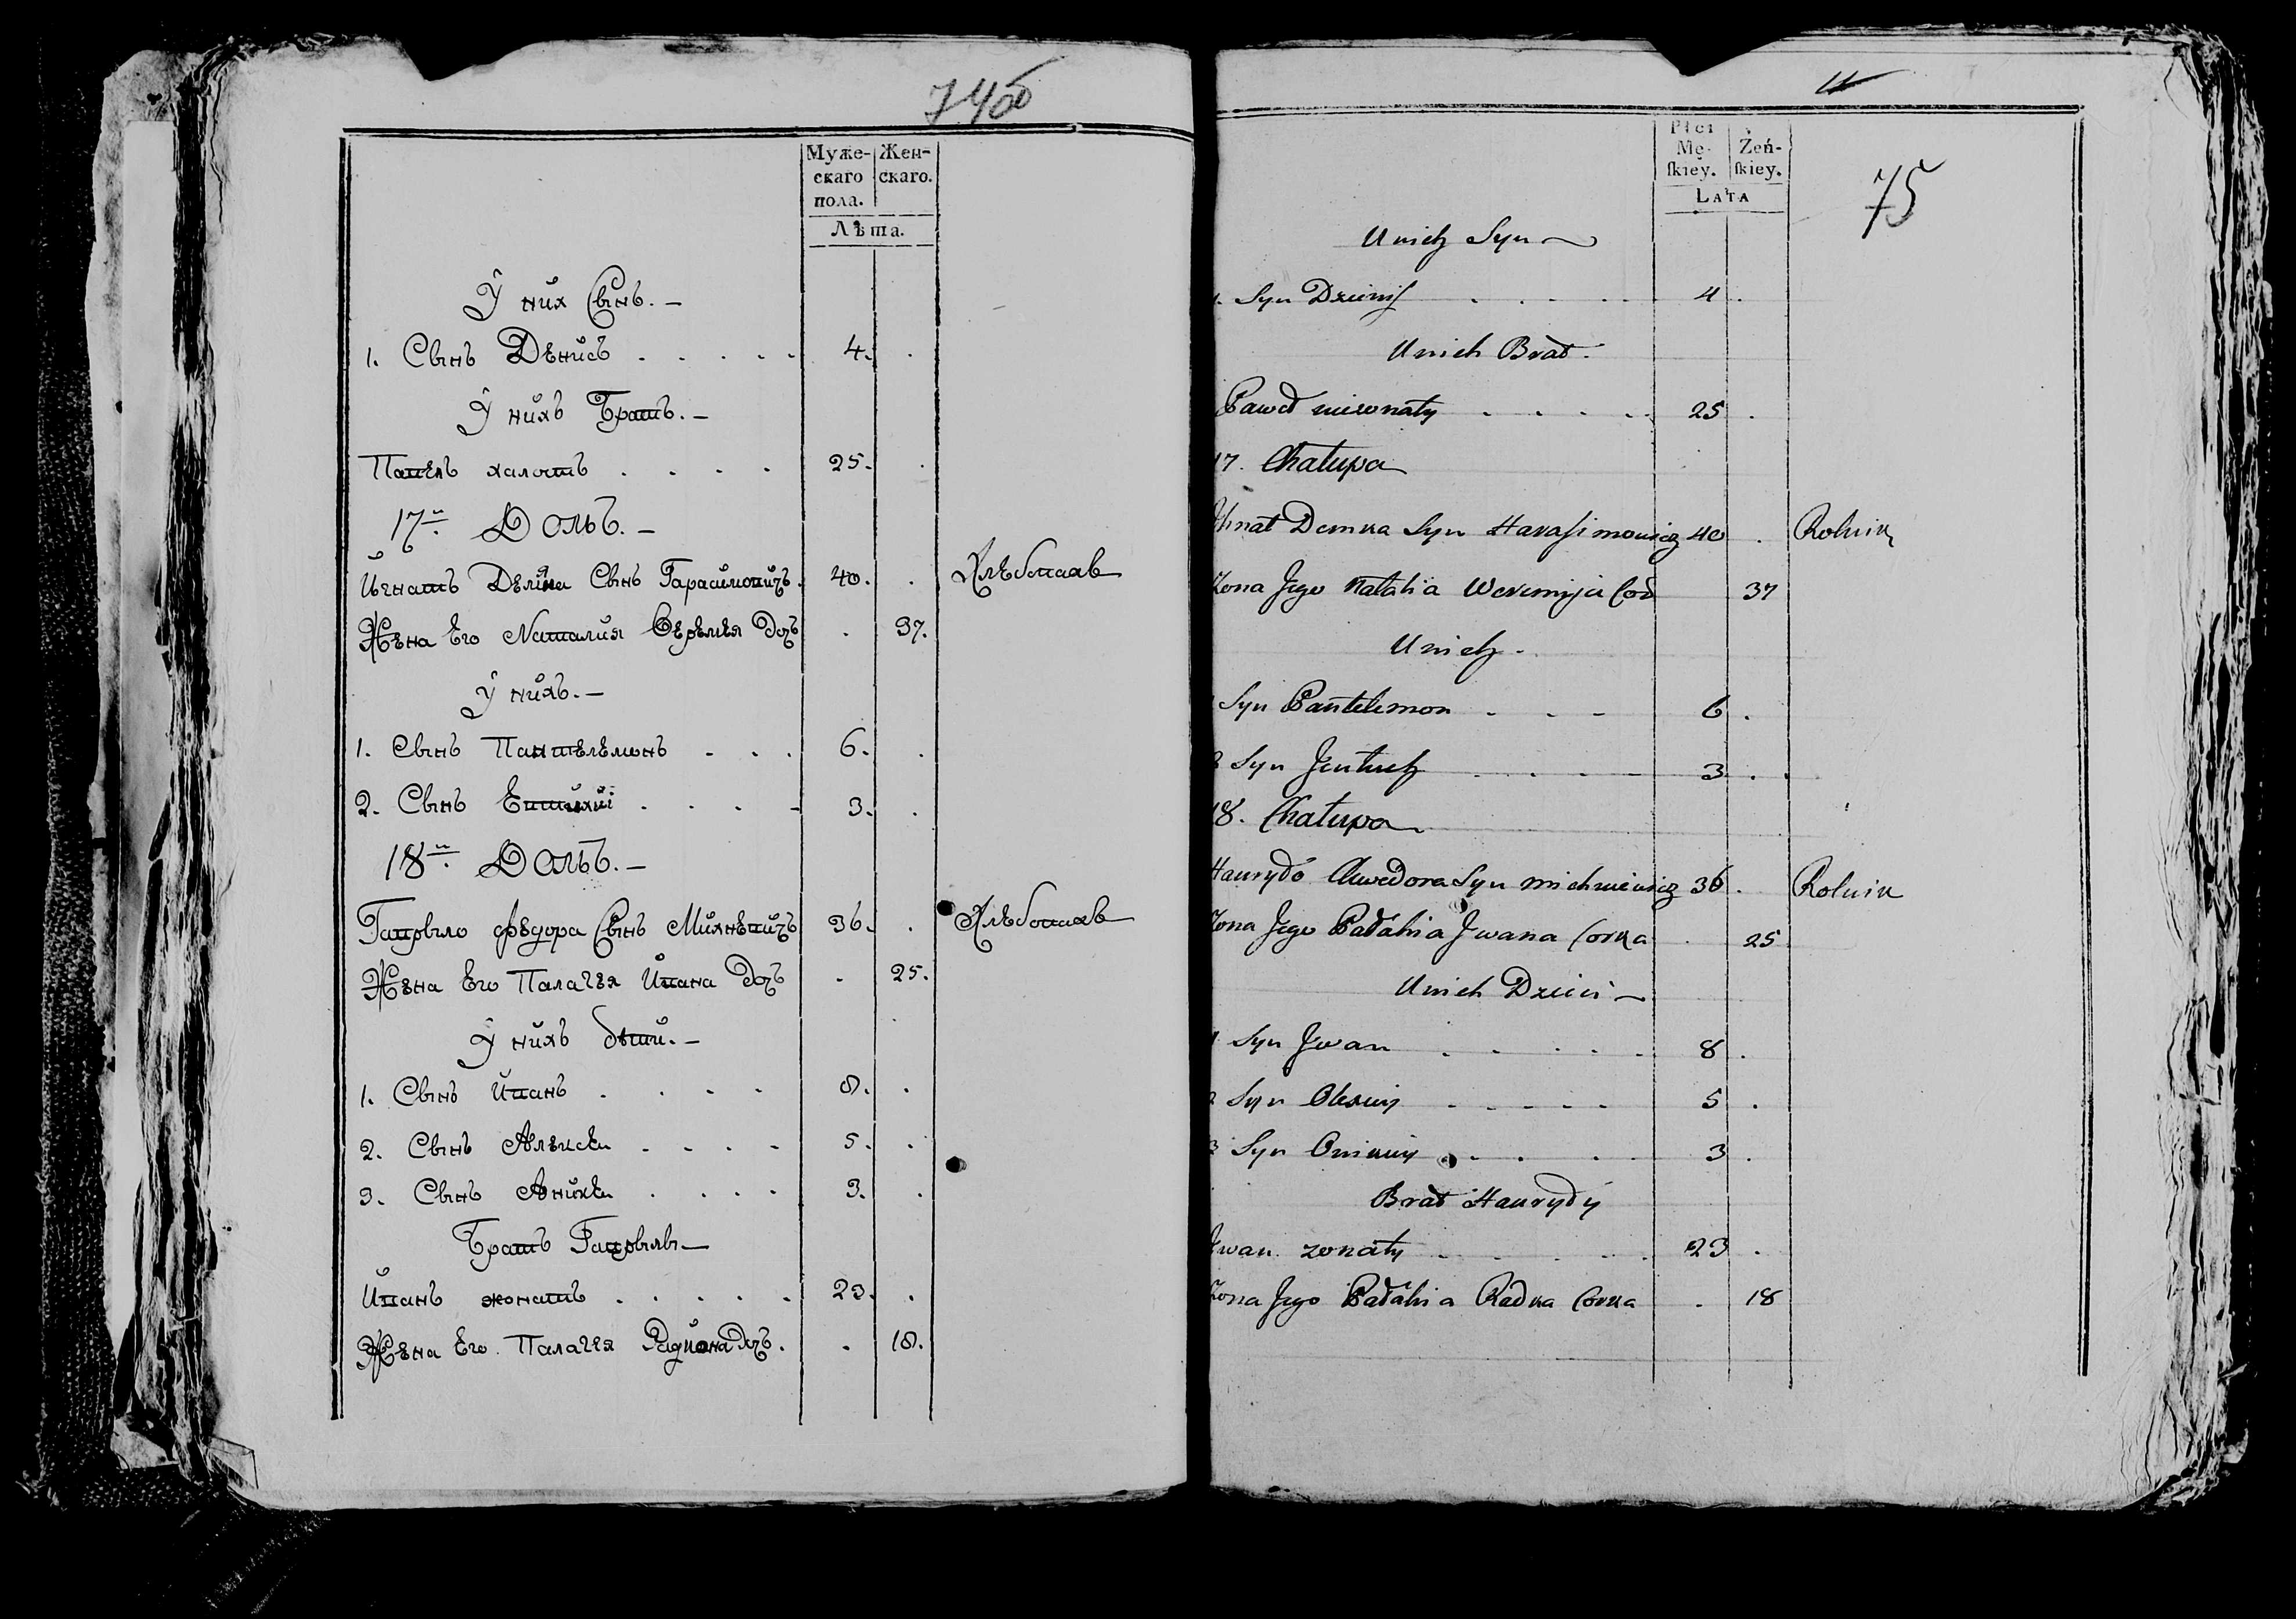 74об
Муже-
скаго
пола.
Жен-
скаго.
Лѣта.
У них Сынъ.—
1. Сынъ Денисъ . . . . . 4. .
У нихъ Братъ.—
Павелъ халостъ . . . . 25. .
17й Домъ.—
Игнатъ Демка Сынъ Гарасимовичъ. 40. . Хлебопахъ
Жена Его Наталия Веремея Дочь . 37.
У нихъ.—
1. Сынъ Пантелемонъ . . . 6. .
2. Сынъ Евтихий . . . . 3. .
18й Домъ.—
Гаврыло Федора Сынъ Михневичъ 36. . Хлебопахъ
Жена Его Палагея Ивана Дочь . 25.
У нихъ дети.—
1. Сынъ Иванъ . . . . 8. .
2. Сынъ Алексей . . . . 5. .
3. Сынъ Аникей . . . . 3. .
Братъ Гаврылы—
Иванъ жонатъ . . . . . 23. .
Жена Его Палагея Радиона Дочь. . 18.
75
Płci
Mę-
ſkiey.
Żeń-
ſkiey.
LATA
Unich Syn
1. Syn Dzienis . . . . . 4 .
Unich Brat.
Paweł nieżonaty . . . . . 25 .
17. Chałupa
Ihnat Demka Syn Harasimowicz 40 . Rolnik
Żona Jego Natalia Weremija Cor 37
Unich.
1 Syn Pantelemon . . . 6 .
2 Syn Jewtuch . . . . 3 .
18. Chałupa
Hauryło Chwedora Syn Michniewicz 36 . Rolnik
Żona Jego Pałahia Jwana Corka . 25
Unich Dzieci
1 Syn Jwan . . . . . 8 .
2 Syn Olexiey . . . . . 5 .
3 Syn Onikiey . . . . 3 .
Brat Hauryły
Jwan żonaty . . . . . 23 .
Żona Jego Pałahia Radka Corka . 18